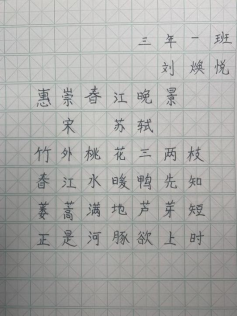 三年一班
刘焕悦
惠崇春江晚景
宋 苏轼
竹外桃花三两枝
春江水暖鸭先知
蒌蒿满地芦芽短
正是河豚欲上时